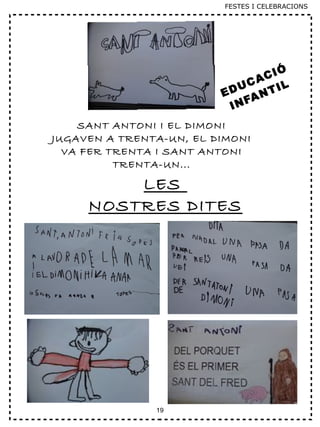 FESTES I CELEBRACIONS
SANT ANTONI
EDUCACIÓ
INFANTIL
SANT ANTONI I EL DIMONI
JUGAVEN A TRENTA-UN, EL DIMONI
VA FER TRENTA I SANT ANTONI
TRENTA-UN...
LES
NOSTRES DITES
SANT, ANTONI FEIA SOPES
A LA VORA DE LA MAR
I EL DIMONI HI VA ANAR
DITA
PER NADAL UNA PASA DA
PER REIS UNA
PASA DA
SANT ANTONI UNA PASA
DE DIMONI
SANT ANTONI
DEL PORQUET
ÉS EL PRIMER
SANT DEL FRED
19